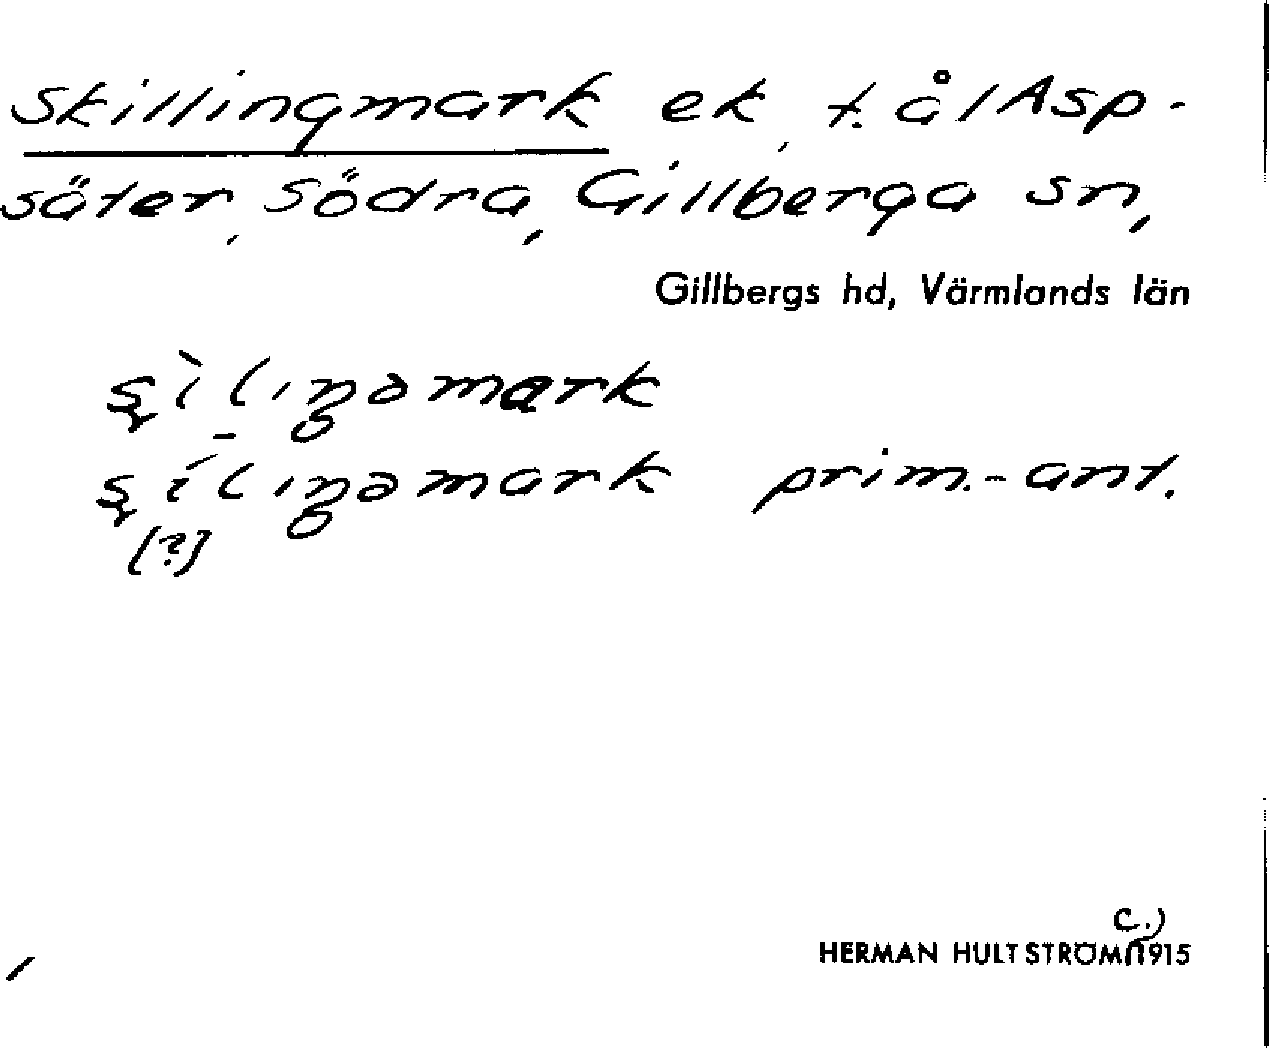 Skillingmark ek, t. ål Asp-
säter, Södra, Gillberga sn,
Gillbergs hd, Värmlands län
prim.-ant.
[?]
c.)
HERMAN HULTSTRÖM 1915